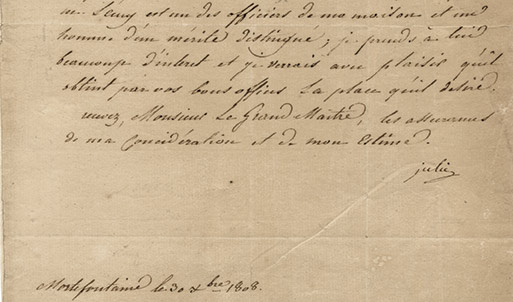 est un des officiers de ma maison et un
homme d'un mérite distingué; je prends à lui
beaucoup d'interet et je verrais avec plaisir qu'il
obtint par vos bons offices la place qu'il desire.
recevez, Monsieur Le Grand Maitre, les assurances
de ma Considération et de mon Estime.
julie
Mortefontaine le 30 xbre 1808.